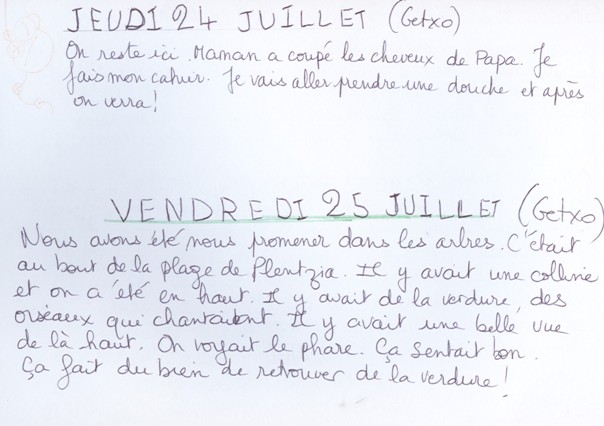 JEUDI 24 JUILLET (Getxo)
On reste ici. Maman a coupé les cheveux de Papa. Je
fais mon cahier. Je vais aller prendre une douche et après
on verra!
VENDREDI 25 JUILLET (Getxo)
Nous avons été nous promener dans les arbres. C'était
au bout de la plage de Plentzia. Il y avait une colline
et on a été en haut. Il y avait de la verdure, des
oiseaux qui chantaient. Il y avait une belle vue
de là haut. On voyait le phare. Ça sentait bon.
Ça fait du bien de retrouver de la verdure!